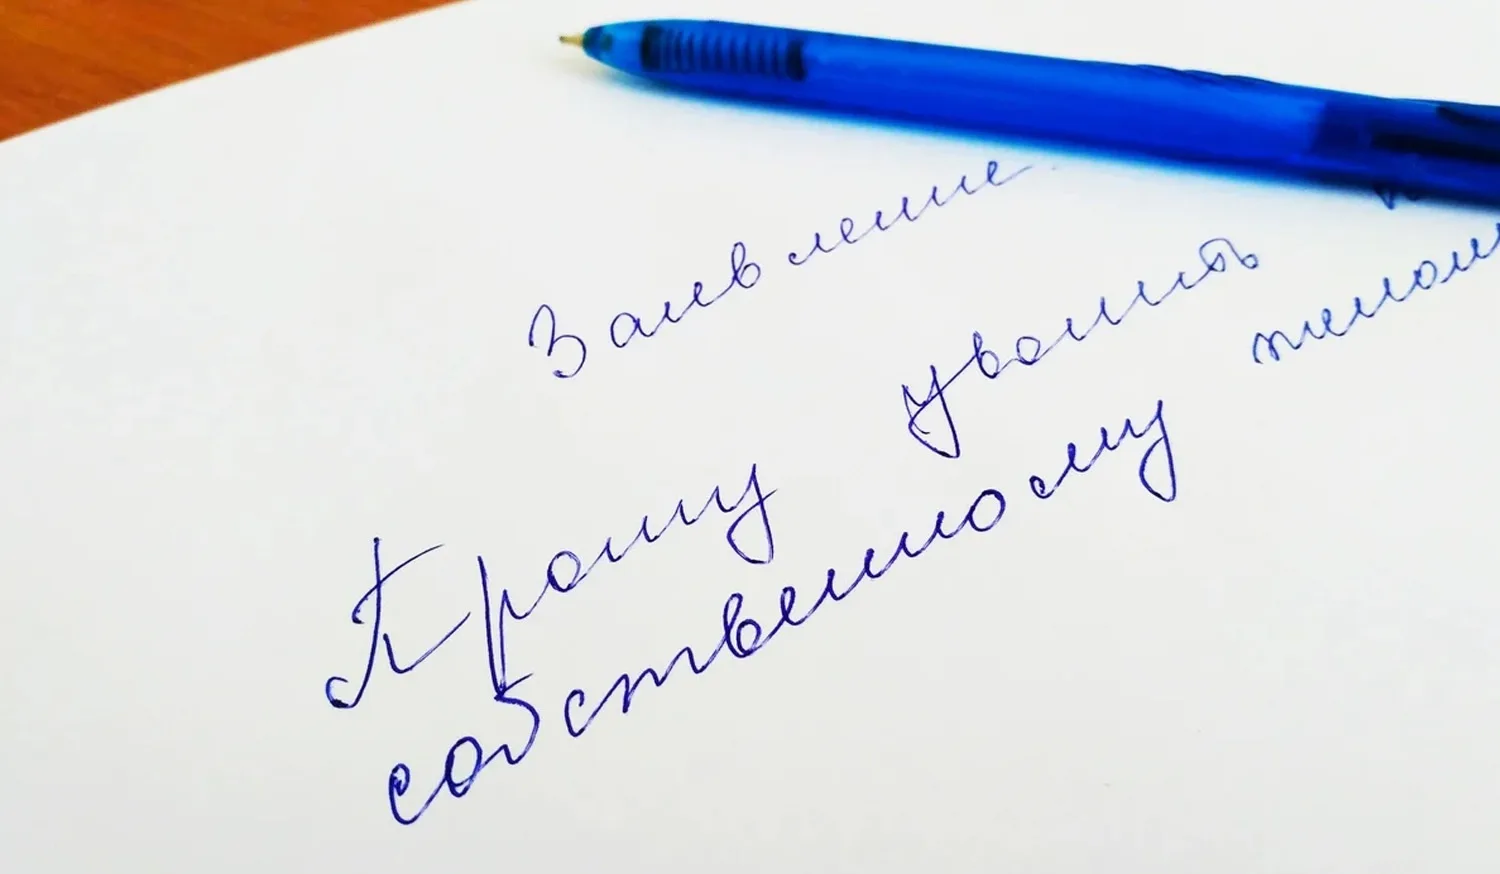 Заявление.
Прошу уволить
собственному